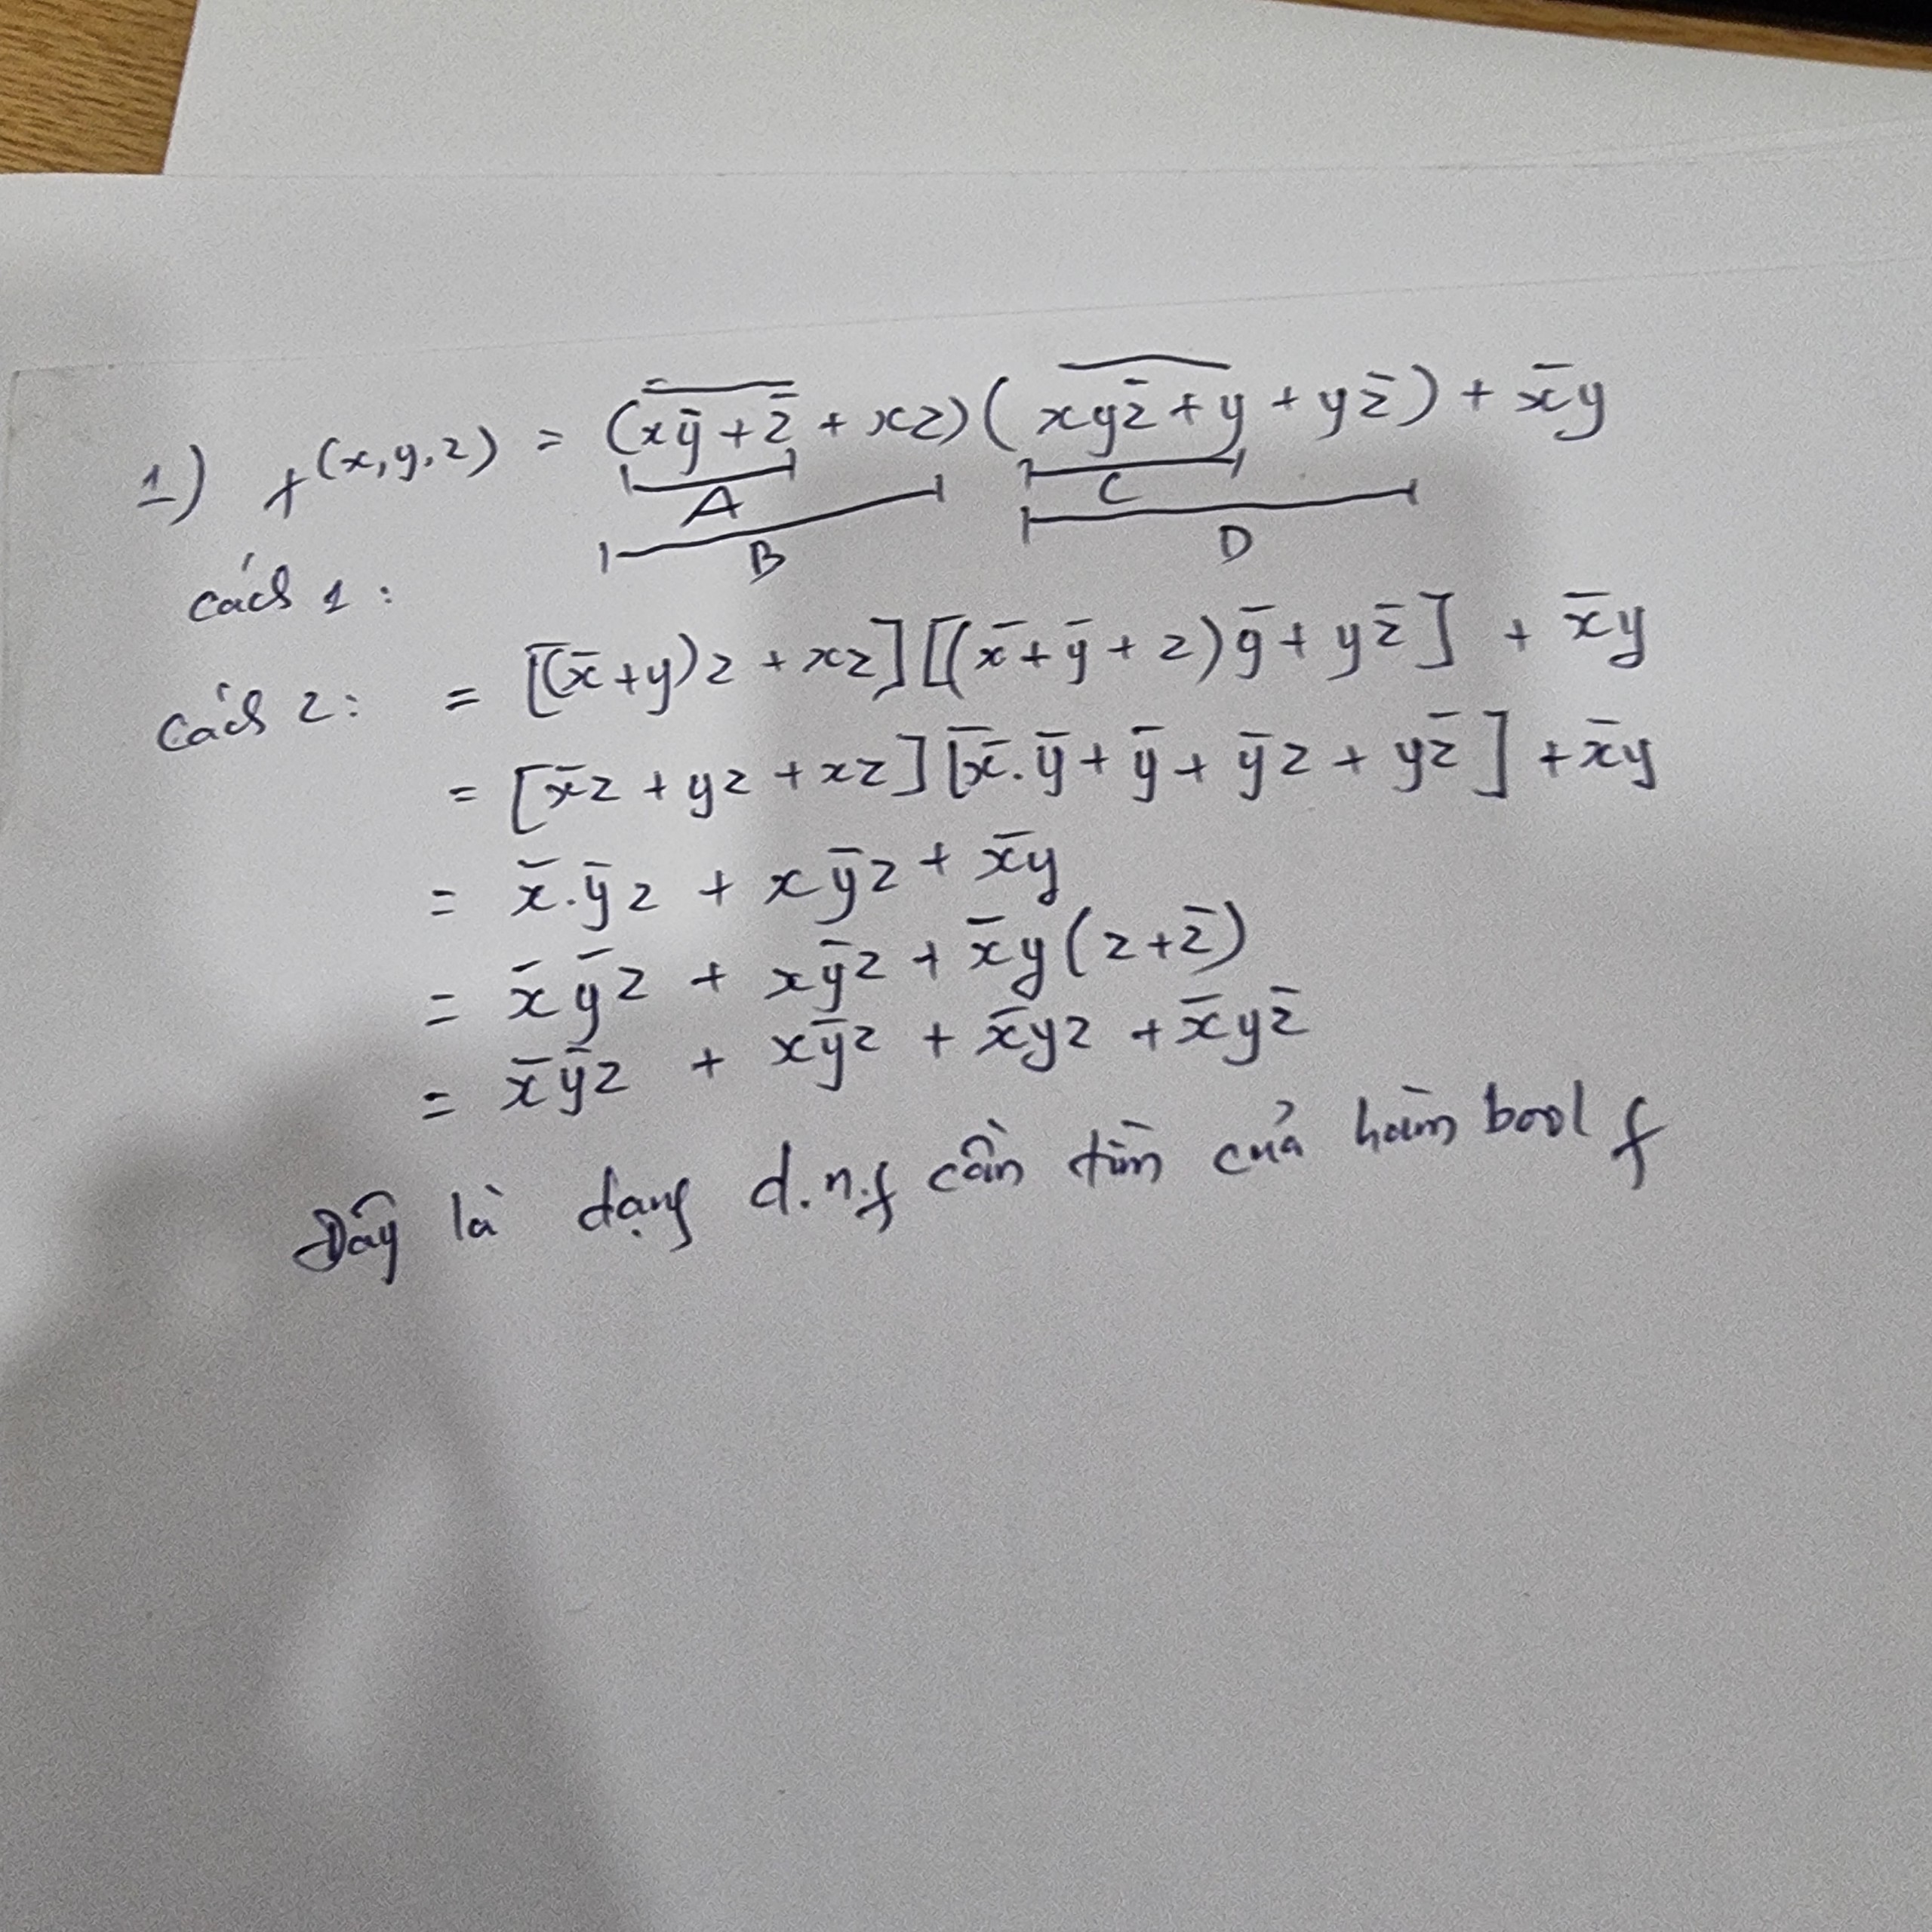 1) f(x,y,z) = (\overline{x\bar{y}+\bar{z}} + xz)(\overline{xy\bar{z}+y} + y\bar{z}) + \bar{x}y
A C
B D
Cách 1:
Cách 2: = [(\bar{x}+y)z + xz][(\bar{x}+\bar{y}+z)\bar{y} + y\bar{z}] + \bar{x}y
= [\bar{x}z + yz + xz][\bar{x}.\bar{y} + \bar{y} + \bar{y}z + y\bar{z}] + \bar{x}y
= \bar{x}.\bar{y}z + x\bar{y}z + \bar{x}y
= \bar{x}\bar{y}z + x\bar{y}z + \bar{x}y(z+\bar{z})
= \bar{x}\bar{y}z + x\bar{y}z + \bar{x}yz + \bar{x}y\bar{z}
Đây là dạng d.n.f cần tìm của hàm bool f